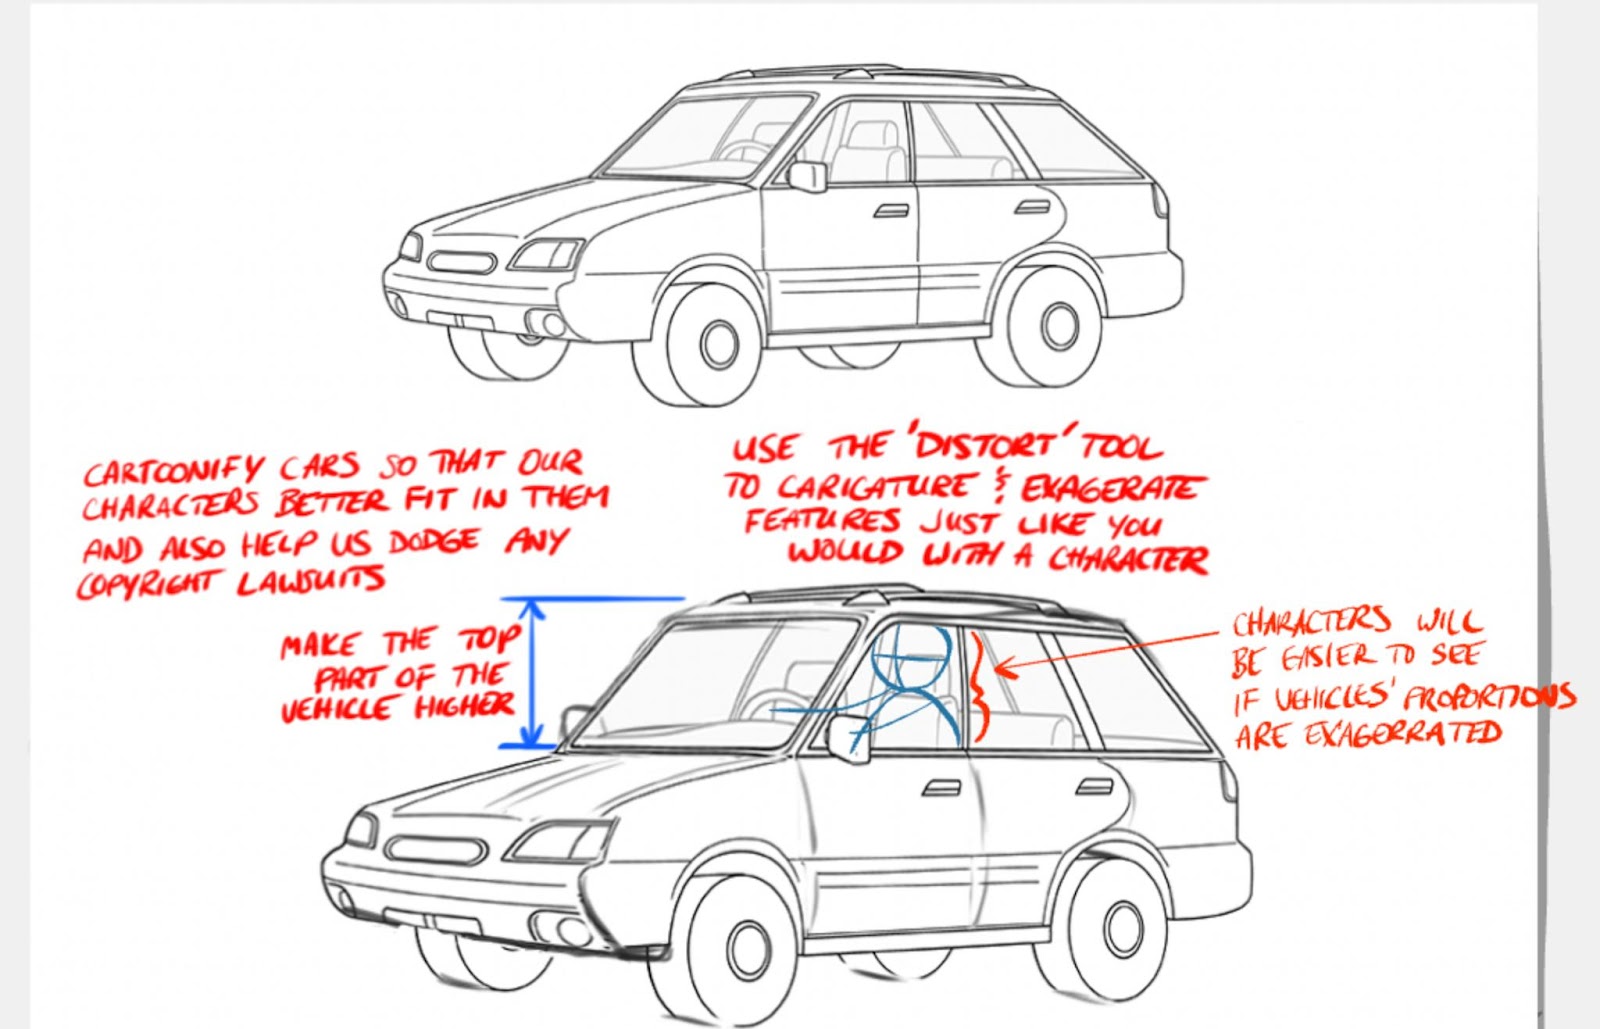 CARTOONIFY CARS SO THAT OUR
CHARACTERS BETTER FIT IN THEM
AND ALSO HELP US DODGE ANY
COPYRIGHT LAWSUITS
USE THE 'DISTORT' TOOL
TO CARICATURE & EXAGERATE
FEATURES JUST LIKE YOU
WOULD WITH A CHARACTER
MAKE THE TOP
PART OF THE
VEHICLE HIGHER
CHARACTERS WILL
BE EASIER TO SEE
IF VEHICLES' PROPORTIONS
ARE EXAGERRATED